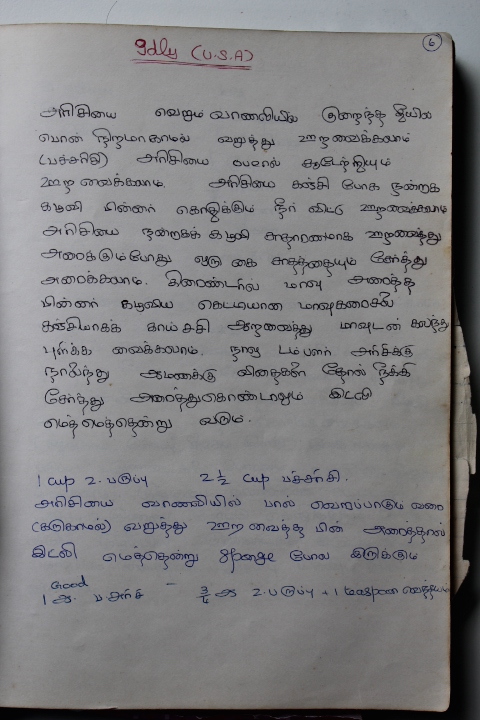 6
Idly (U.S.A)
அரிசியை வெறும் வாணலியில் குறைந்த தீயில
பொன் நிறமாகாமல் வறுத்து ஊறவைக்கலாம்
(பச்சரிசி) அரிசியை
ஊற வைக்கலாம். அரிசியை கஞ்சி போக நன்றாக
கழுவி பின்னர் கொதிக்கும் நீர் விட்டு ஊறவைக்கலாம்
அரிசியை நன்றாகக் கழுவி சாதாரணமாக ஊறவைத்து
அரைக்கும்போது ஒரு கை சாதத்தையும் சேர்த்து
அரைக்கலாம். கிரைண்டரில் மாவு அரைத்த
பின்னர் கழுவிய கெட்டியான மாவுகரைசல்
கஞ்சிமாகக் காய்ச்சி ஆறவைத்து மாவுடன் கலந்து
புளிக்க வைக்கலாம். நாலு டம்ளர் அரிசிக்கு
நாலைந்து ஆமணக்கு விதைகளை தோல் நீக்கி
சேர்த்து அரைத்துகொண்டாலும் இட்லி
மெத்மெத்தென்று வரும்.
1 cup உ. பருப்பு 2 ½ cup பச்சரிசி.
அரிசியை வாணலியில் பால் வெறுப்பாகும் வரை
(கருகாமல்) வறுத்து ஊற வைத்த பின் அரைத்தால்
இட்லி மெத்தென்று Sponge போல இருக்கும்
Good
1 ஆ. ப அரிசி – ¾ ஆ உ. பருப்பு + 1 teaspoon வெந்தியம்